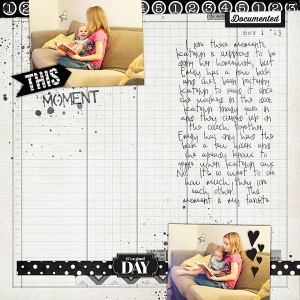 Documented
nov 1 '13
THIS
MOMENT
for these moments
Kaitlyn is supposed to be
doing her homework, but
Emily has a new book
and she's been
Kaitlyn to read it since
she walked in the door.
Kaitlyn finally gave in
and they curled up on
the couch together.
Emily has only had this
book a few hours and
she already knows to
when Kaitlyn says
No. It's so sweet to see
how much they love
each other. This
moment is my favorite.
it's a good
DAY